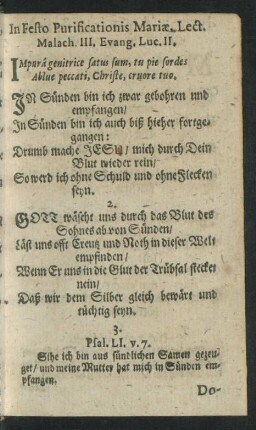 In Festo Purificationis Mariæ. Lect.
Malach. III, Evang. Luc. II.
IMpurâ genitrice satus sum, tu pie sordes
Ablue peccati, Christe, cruore tuo.
IN Sünden bin ich zwar gebohren und
empfangen/
In Sünden bin ich auch biß hieher fortge-
gangen:
Drumb mache JESU/ mich durch Dein
Blut wieder rein/
So werd ich ohne Schuld und ohne Flecken
seyn.
2.
GOTT wäscht uns durch das Blut des
Sohnes ab von Sünden/
Läst uns offt Creutz und Noth in dieser Welt
empfinden/
Wenn Er uns in die Glut der Trübsal stecket
nein/
Daß wir dem Silber gleich bewärt und
tüchtig seyn.
3.
Psal. LI. v. 7.
Sihe ich bin aus sündlichen Samen gezeu-
get/ und meine Mutter hat mich in Sünden em-
pfangen.
Do-